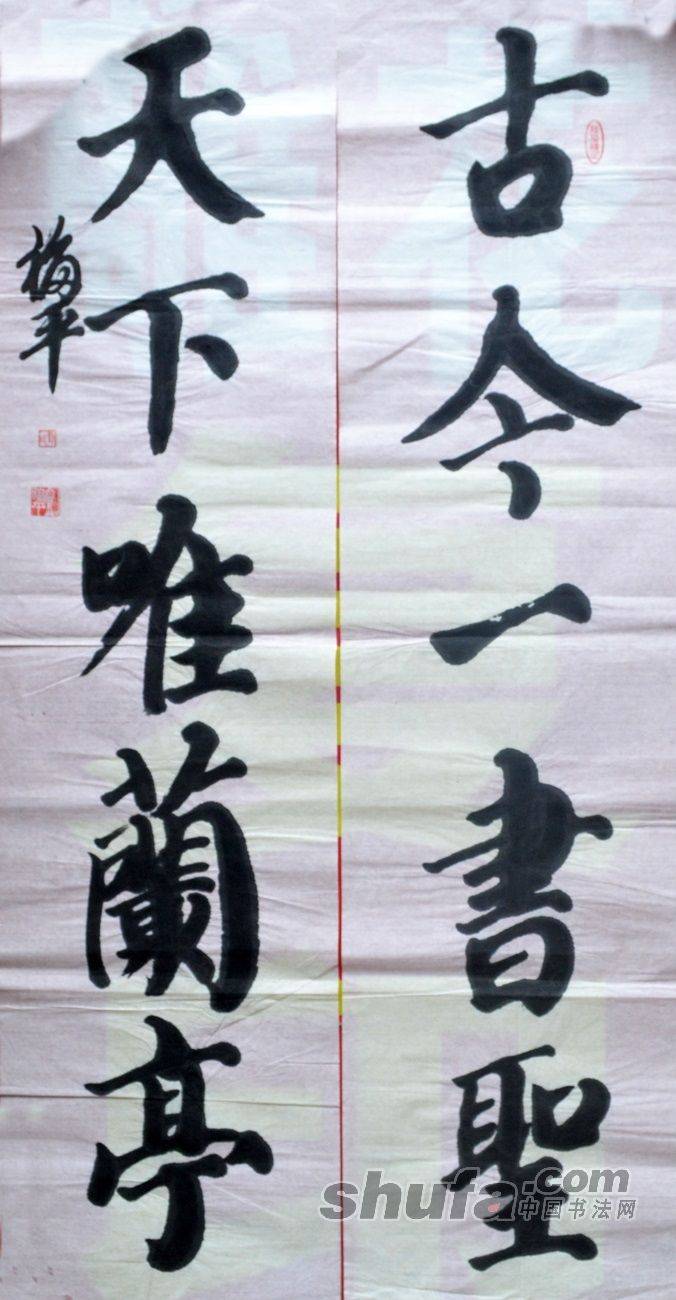 古今一書聖
天下唯蘭亭
梅平
shufa.com
中国书法网